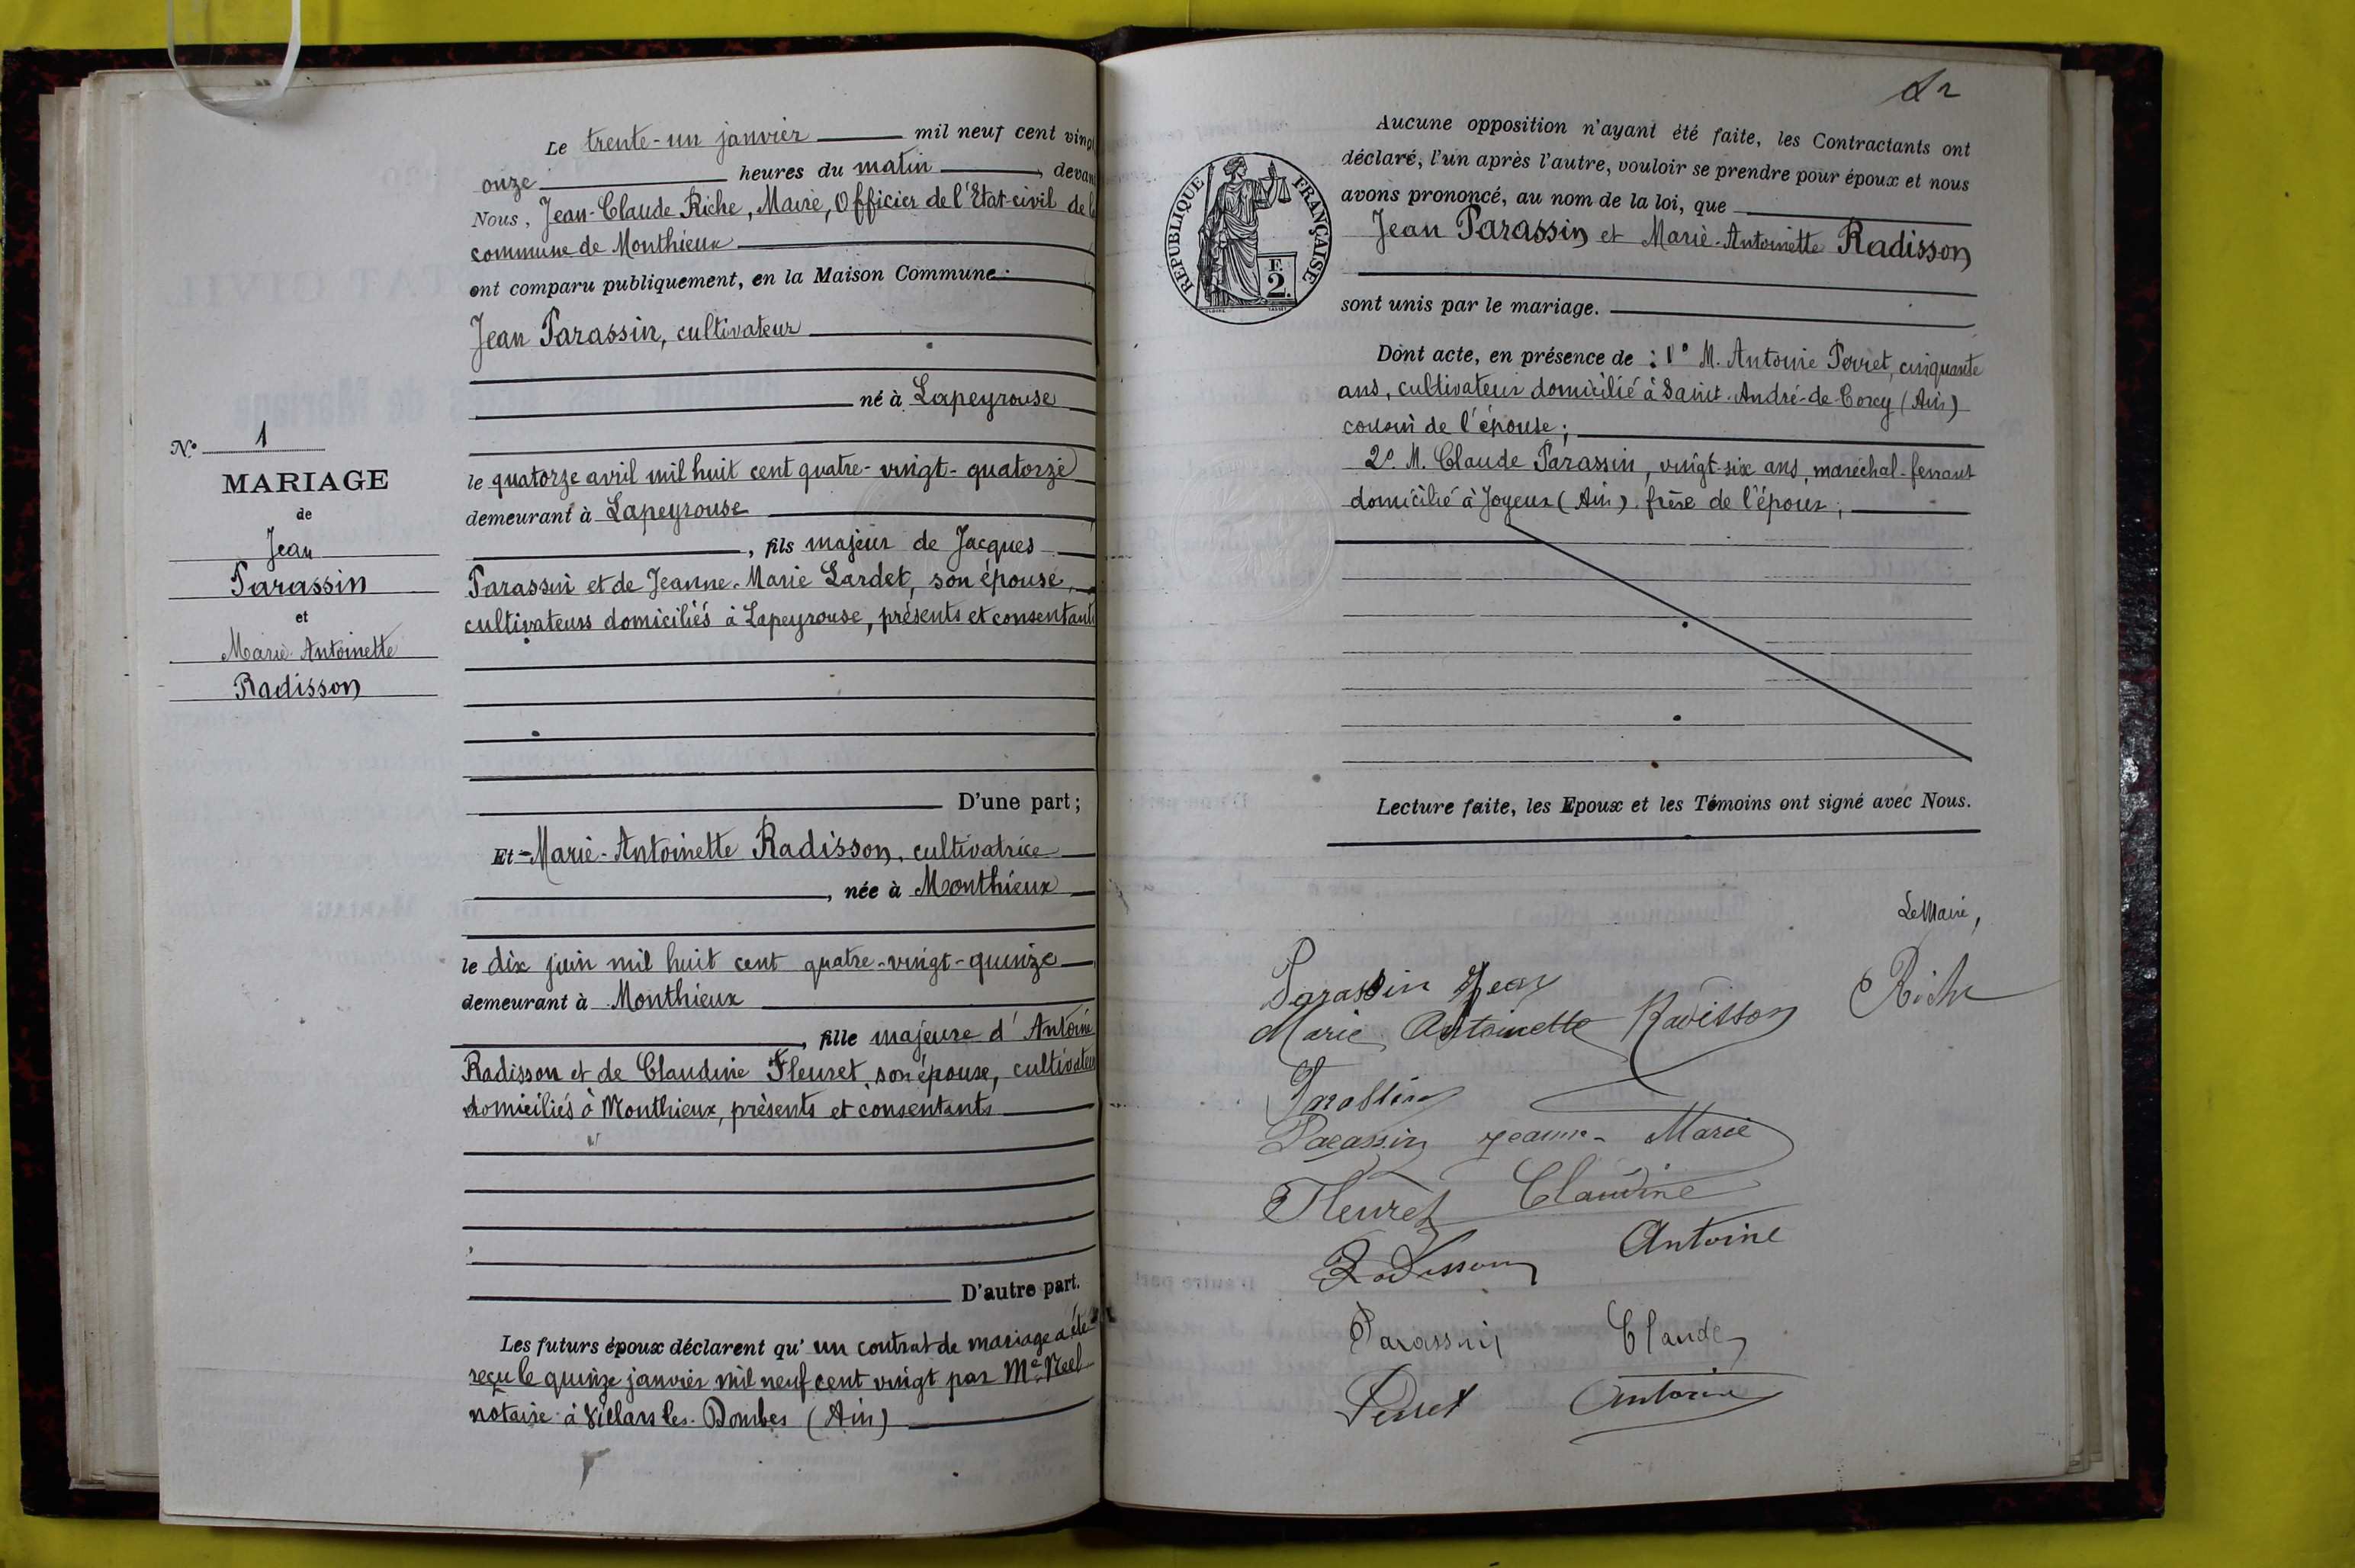 N.° 1
MARIAGE
de
Jean
Parassin
et
Marie-Antoinette
Radisson
Le trente-un janvier mil neuf cent vingt
onze heures du matin, devant
Nous, Jean-Claude Riche, Maire, Officier de l'Etat-civil de la
commune de Monthieux
ont comparu publiquement, en la Maison Commune:
Jean Parassin, cultivateur
né à Lapeyrouse
le quatorze avril mil huit cent quatre-vingt-quatorze
demeurant à Lapeyrouse
, fils majeur de Jacques
Parassin et de Jeanne-Marie Lardet, son épouse,
cultivateurs domiciliés à Lapeyrouse, présents et consentants
D'une part;
Et Marie-Antoinette Radisson, cultivatrice
, née à Monthieux
le dix juin mil huit cent quatre-vingt-quinze
demeurant à Monthieux
, fille majeure d'Antoine
Radisson et de Claudine Fleuret, son épouse, cultivateurs
domiciliés à Monthieux, présents et consentants
D'autre part.
Les futurs époux déclarent qu'un contrat de mariage a été
reçu le quinze janvier mil neuf cent vingt par Me
notaire à Villars les-Dombes (Ain)
RÉPUBLIQUE FRANÇAISE
F.
2.
Aucune opposition n'ayant été faite, les Contractants ont
déclaré, l'un après l'autre, vouloir se prendre pour époux et nous
avons prononcé, au nom de la loi, que
Jean Parassin et Marie-Antoinette Radisson
sont unis par le mariage.
Dont acte, en présence de : 1° M. Antoine Perret, cinquante
ans, cultivateur domicilié à Saint-André-de-Corcy (Ain)
cousin de l'épouse;
2° M. Claude Parassin, vingt-six ans, maréchal-ferrant
domicilié à Joyeux (Ain), frère de l'époux;
Lecture faite, les Epoux et les Témoins ont signé avec Nous.
Le Maire,
Parassin Jean
Riche
Marie Antoinette Radisson
Parassin
Parassin Jeanne-Marie
Fleuret Claudine
Radisson Antoine
Parassin Claude
Perret Antoine